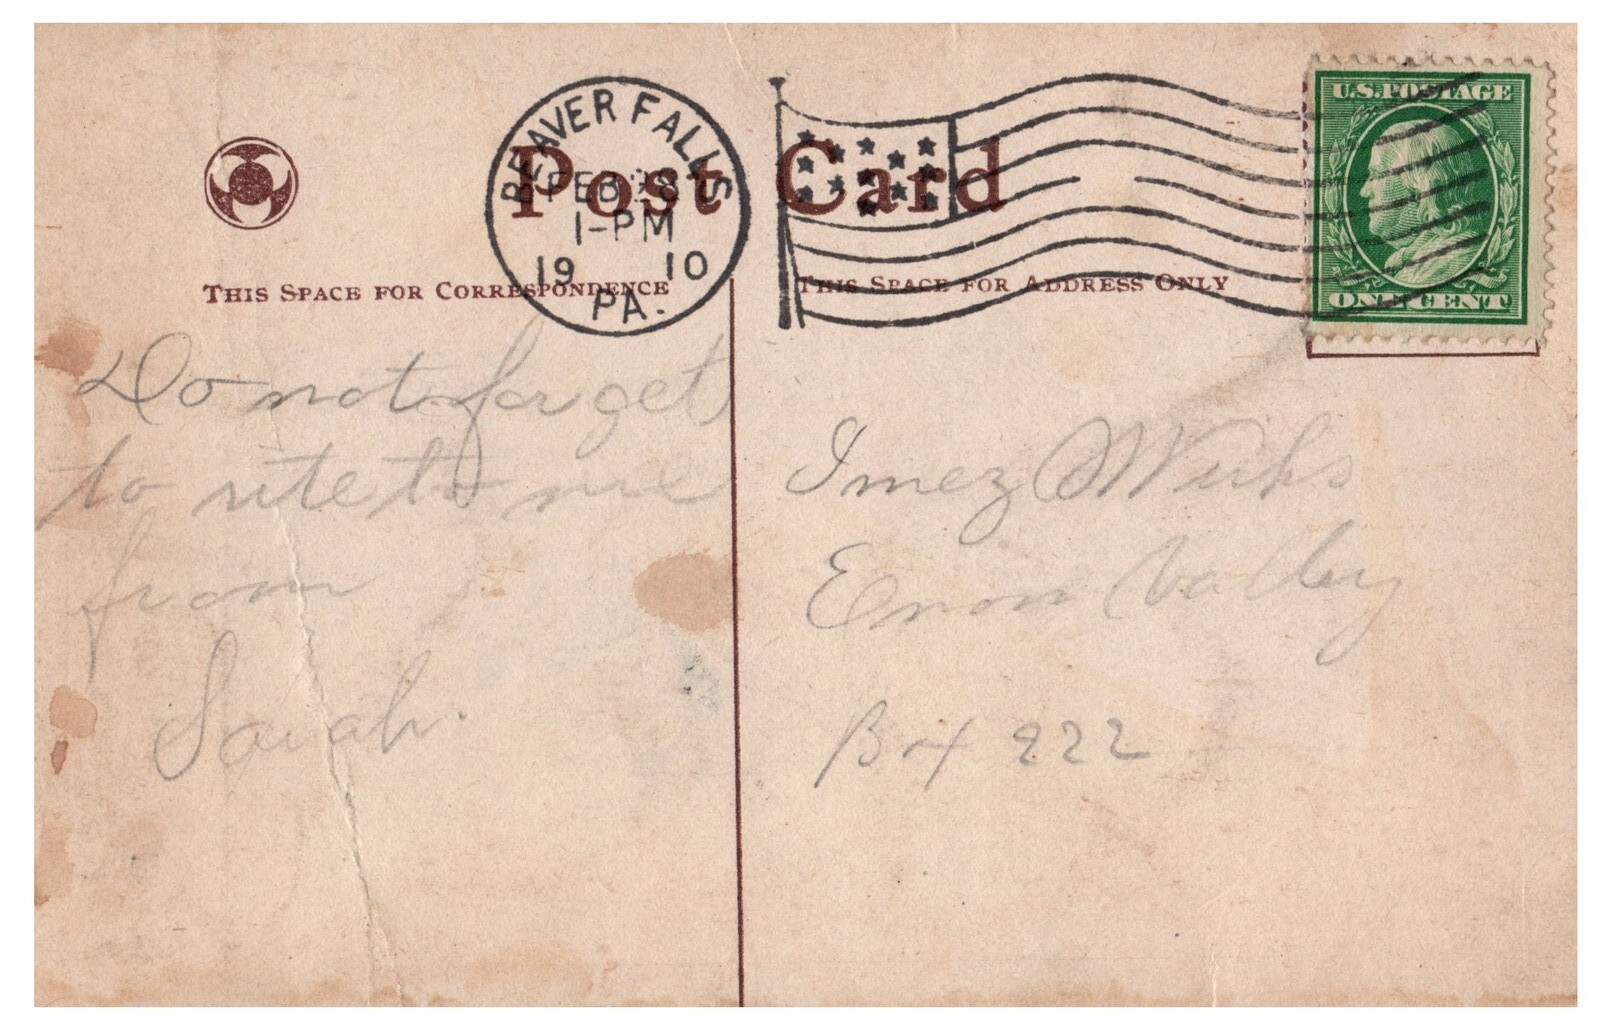 Post Card
BEAVER FALLS
FEB 28
1-PM
1910
PA.
U.S. POSTAGE
ONE CENT
THIS SPACE FOR CORRESPONDENCE
THIS SPACE FOR ADDRESS ONLY
Do not forget
to rite to me
from
Sarah.
Imez
Enon Valley
Box 222